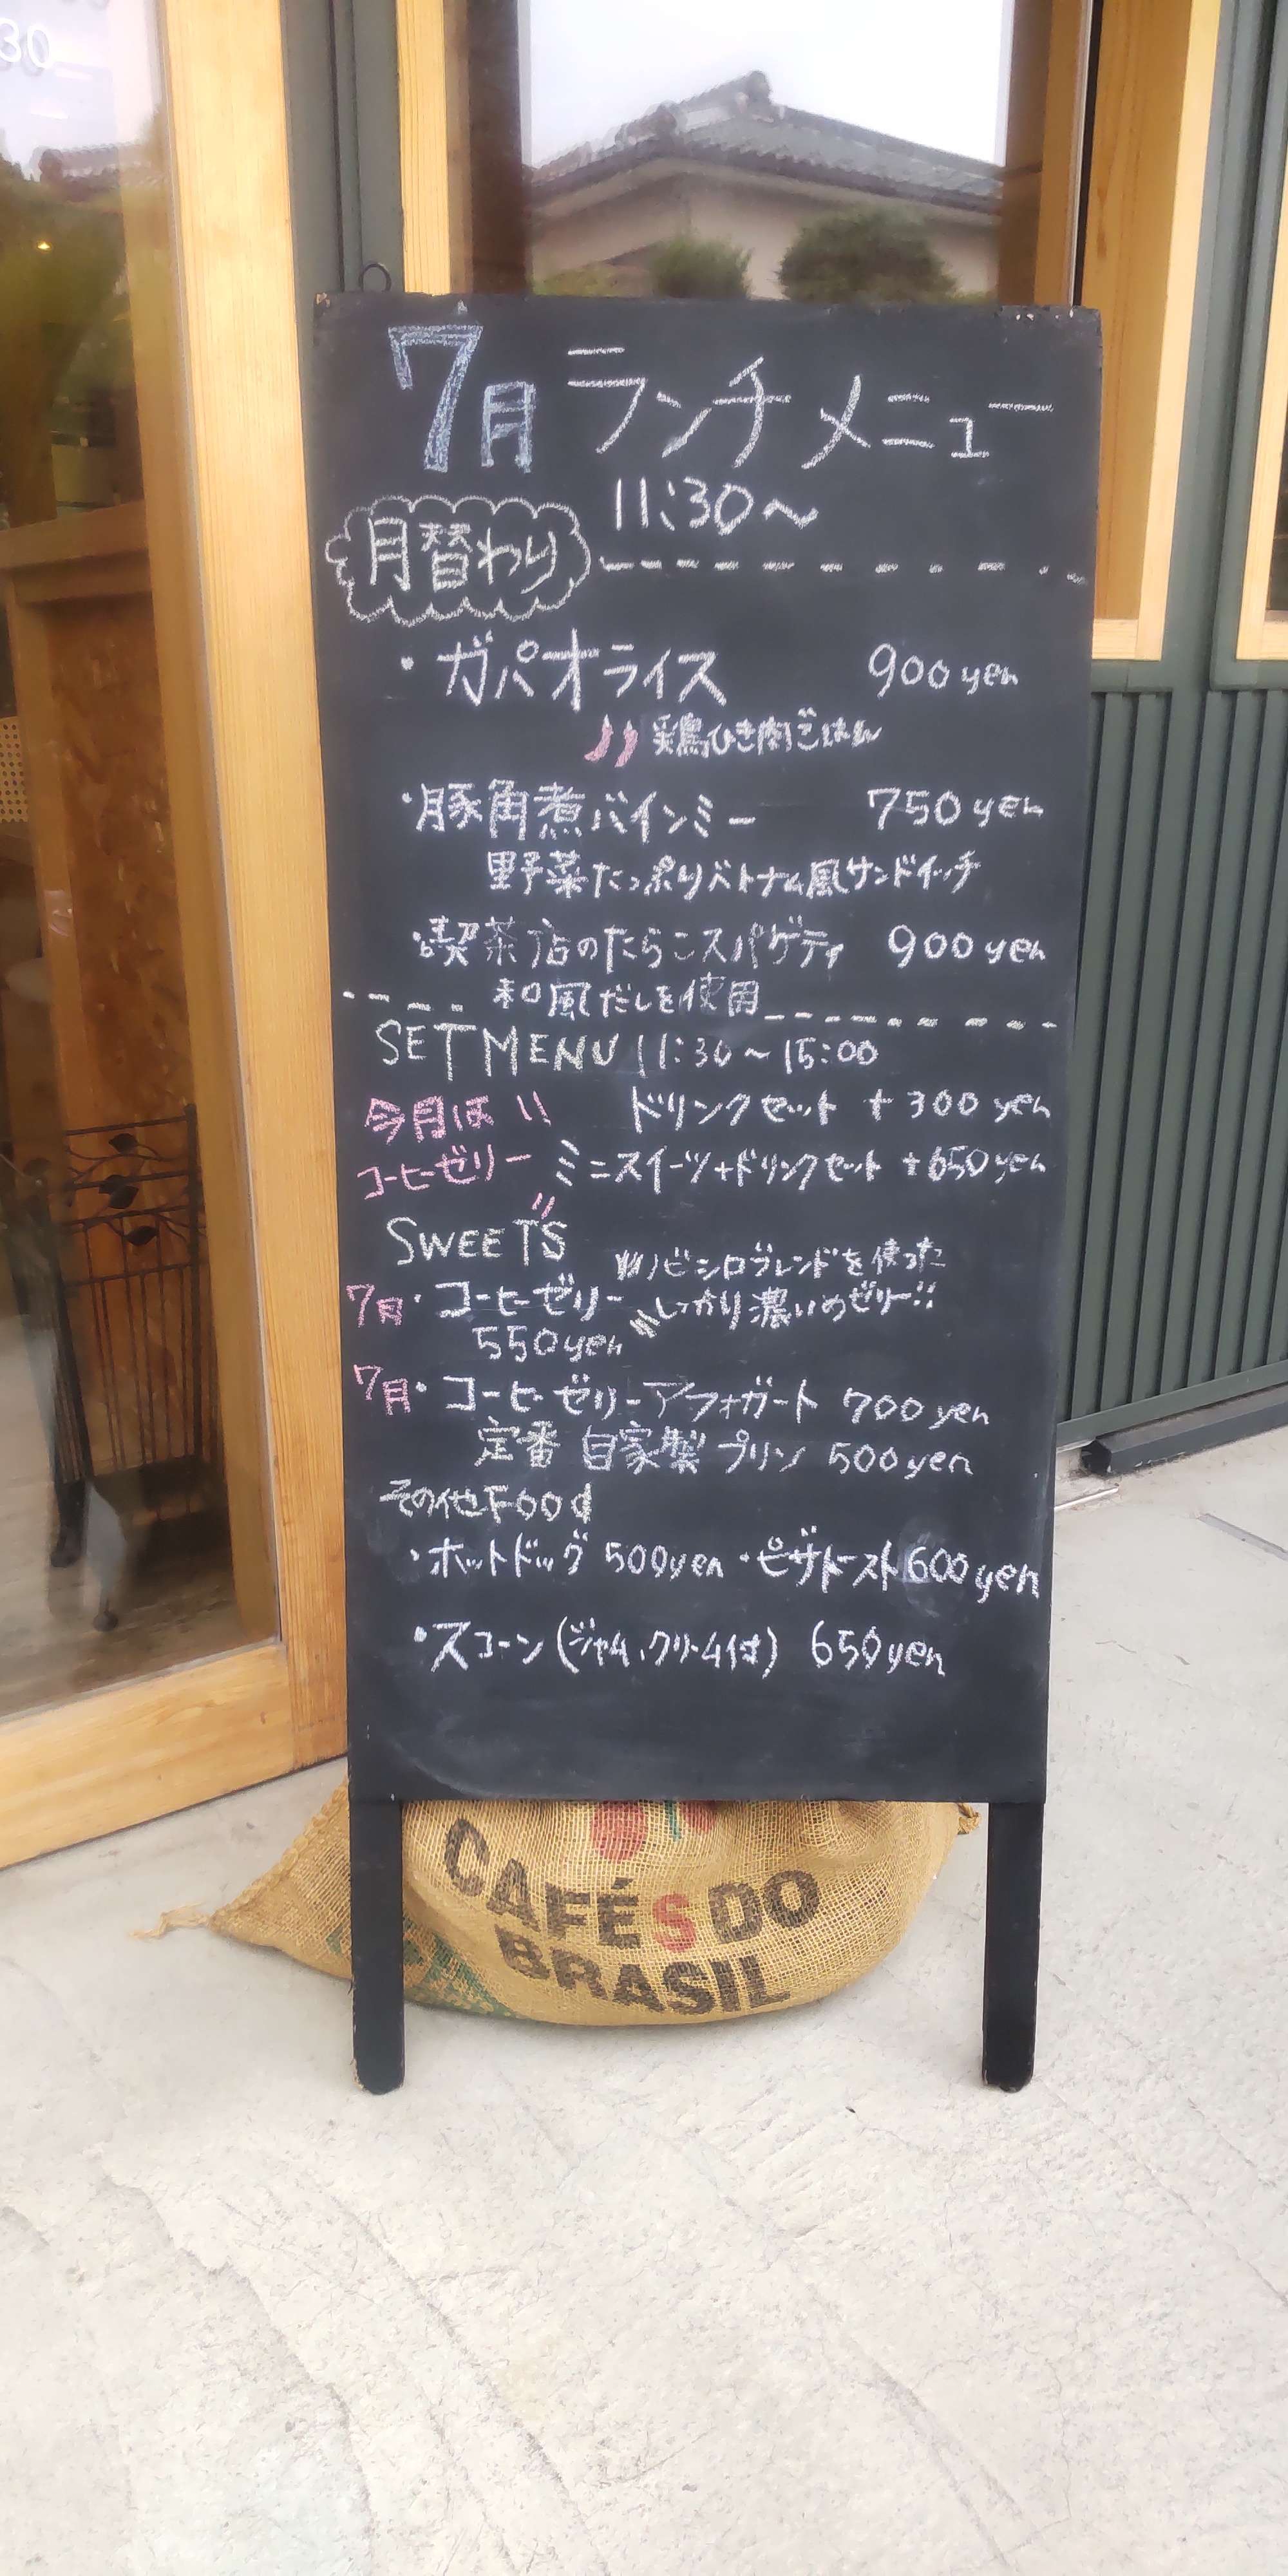 30
7月 ランチメニュー
11:30～
月替わり
・ガパオライス 900yen
鶏ひき肉ごはん
・豚角煮バインミー 750yen
野菜たっぷりベトナム風サンドイッチ
・喫茶店のたらこスパゲティ 900yen
和風だしを使用
SET MENU 11:30～15:00
今月は ドリンクセット +300yen
コーヒーゼリー ミニスイーツ+ドリンクセット +650yen
SWEETS
ノビシロブレンドを使った
7月・コーヒーゼリー しっかり濃いめゼリー!!
550yen
7月・コーヒーゼリーアフォガート 700yen
定番 自家製プリン 500yen
その他Food
・ホットドッグ 500yen ・ピザトースト 600yen
・スコーン(ジャム、クリーム付) 650yen
CAFÉS DO
BRASIL